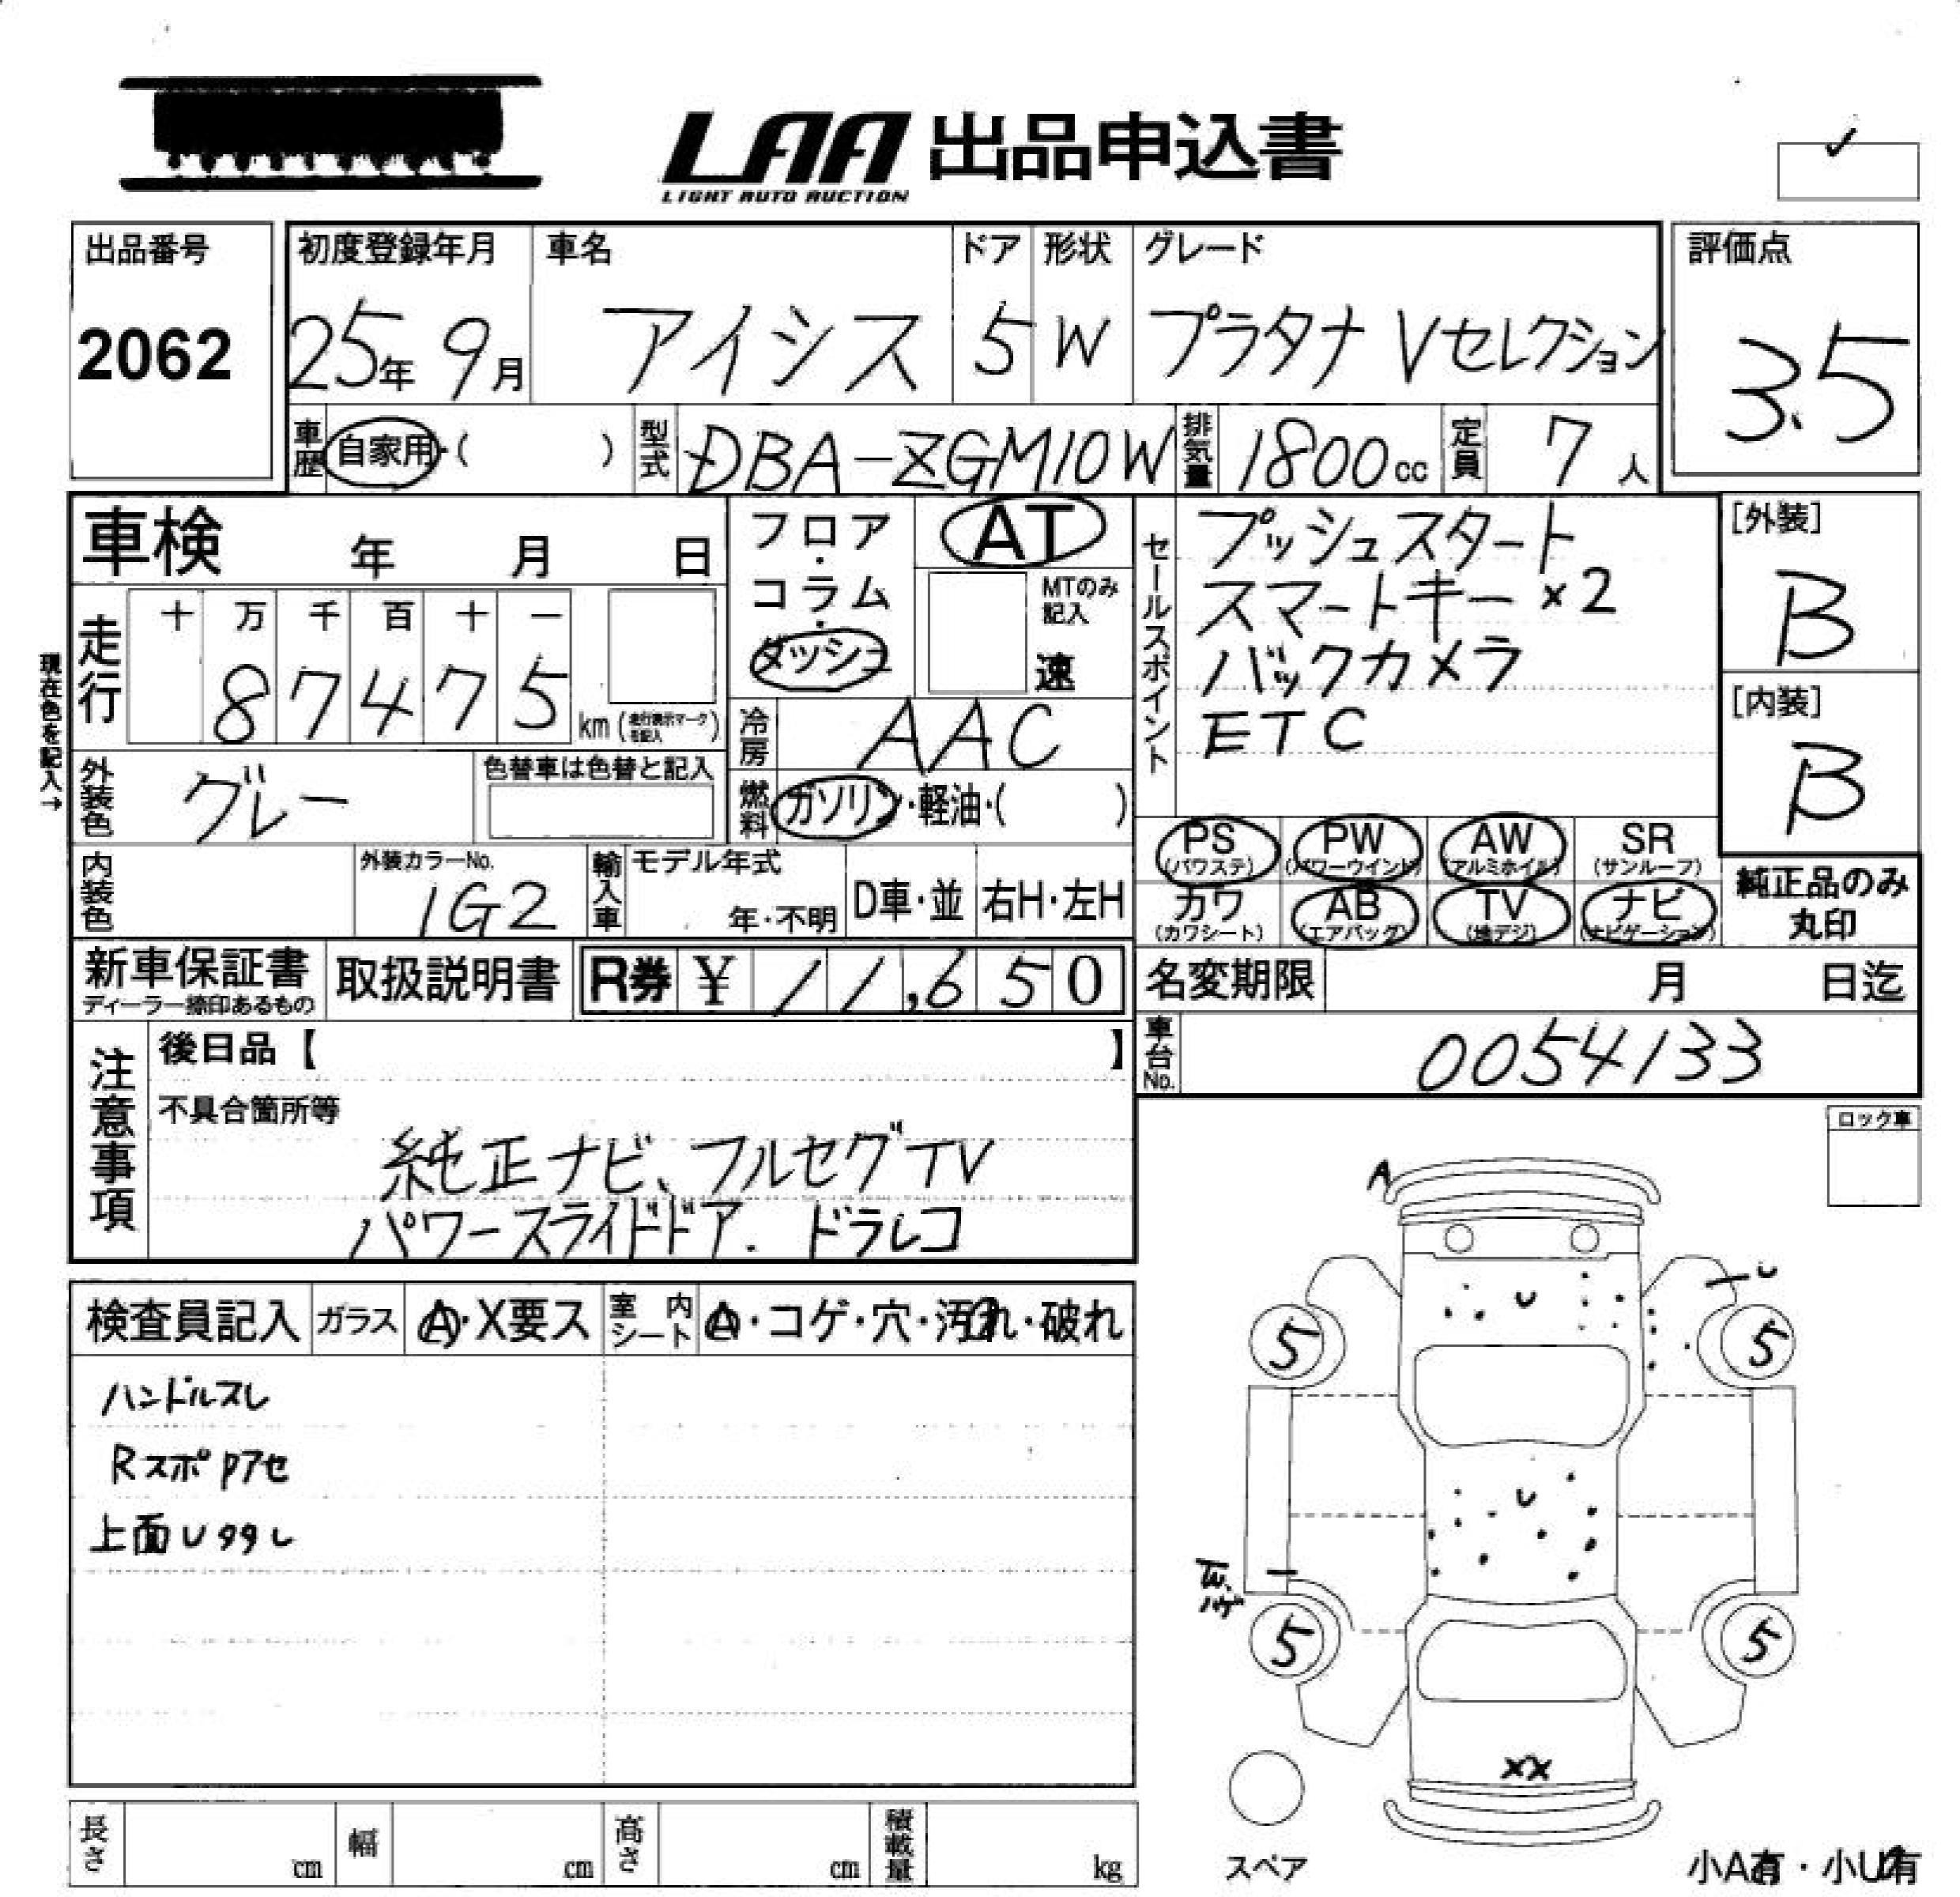 LAA 出品申込書
LIGHT AUTO AUCTION
出品番号
2062
初度登録年月
25年 9月
車名
アイシス
ドア
5
形状
W
グレード
プラタナ Vセレクション
評価点
3.5
車歴 自家用・( )
型式 DBA-ZGM10W
排気量 1800cc
定員 7人
車検 年 月 日
フロア・コラム・ダッシュ
AT
MTのみ記入
速
セールスポイント
プッシュスタート
スマートキー×2
バックカメラ
ETC
[外装]
B
[内装]
B
現在色を記入→
走行
十 万 千 百 十 一
8 7 4 7 5
km(走行表示マークを記入)
冷房 AAC
外装色 グレー
色替車は色替と記入
燃料 ガソリン・軽油・( )
PS (パワステ)
PW (パワーウインド)
AW (アルミホイル)
SR (サンルーフ)
カワ (カワシート)
AB (エアバッグ)
TV (地デジ)
ナビ (ナビゲーション)
純正品のみ
丸印
内装色
外装カラーNo.
1G2
輸入車
モデル年式
年・不明
D車・並
右H・左H
新車保証書
ディーラー捺印あるもの
取扱説明書
R券 ¥ 11,650
名変期限 月 日迄
車台No. 0054133
注意事項
後日品【 】
不具合箇所等
純正ナビ、フルセグTV
パワースライドドア. ドラレコ
ロック車
A
U
U
5
5
U
5
5
XX
検査員記入
ガラス
A・X要ス
室内シート
A・コゲ・穴・汚れ・破れ
ハンドルスレ
Rスポ Pアセ
上面U
長さ cm
幅 cm
高さ cm
積載量 kg
スペア
小A有・小U有